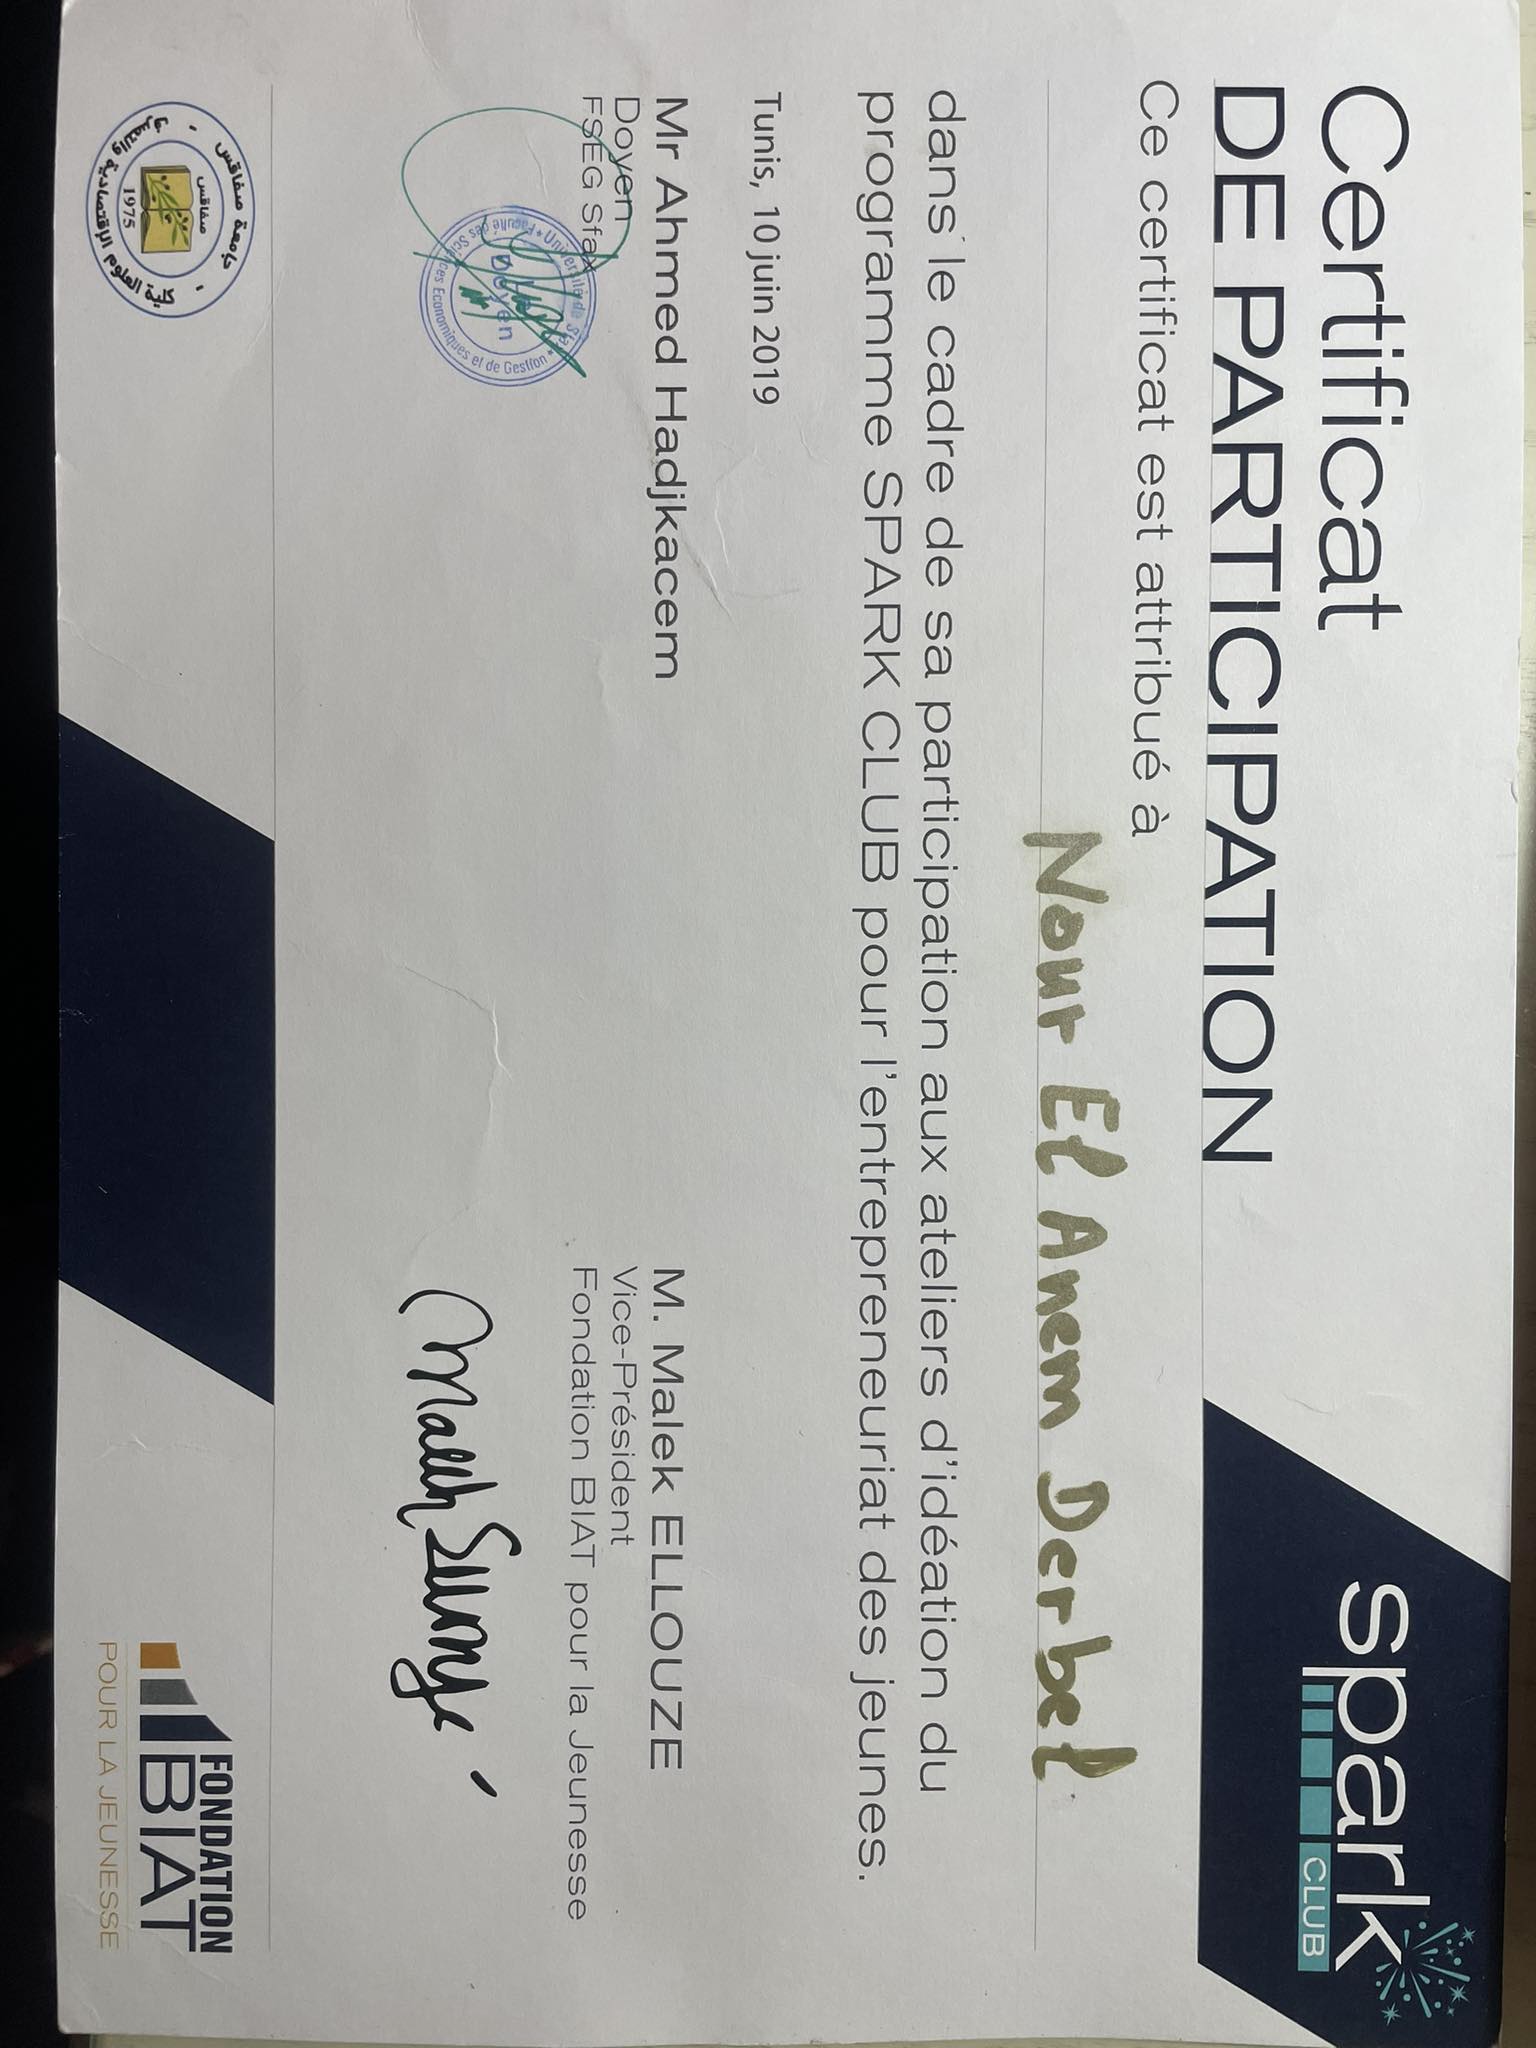 spark
CLUB
Certificat
DE PARTICIPATION
Ce certificat est attribué à
Nour El Anem Derbel
dans le cadre de sa participation aux ateliers d'idéation du
programme SPARK CLUB pour l'entrepreneuriat des jeunes.
Tunis, 10 juin 2019
Mr Ahmed Hadjkacem
Doyen
FSEG Sfax
Université de Sfax
Faculté des Sciences Economiques et de Gestion
Le
Doyen
M. Malek ELLOUZE
Vice-Président
Fondation BIAT pour la Jeunesse
Malek Ellouze
جامعة صفاقس
صفاقس
1975
كلية العلوم الإقتصادية والتصرف
FONDATION
BIAT
POUR LA JEUNESSE